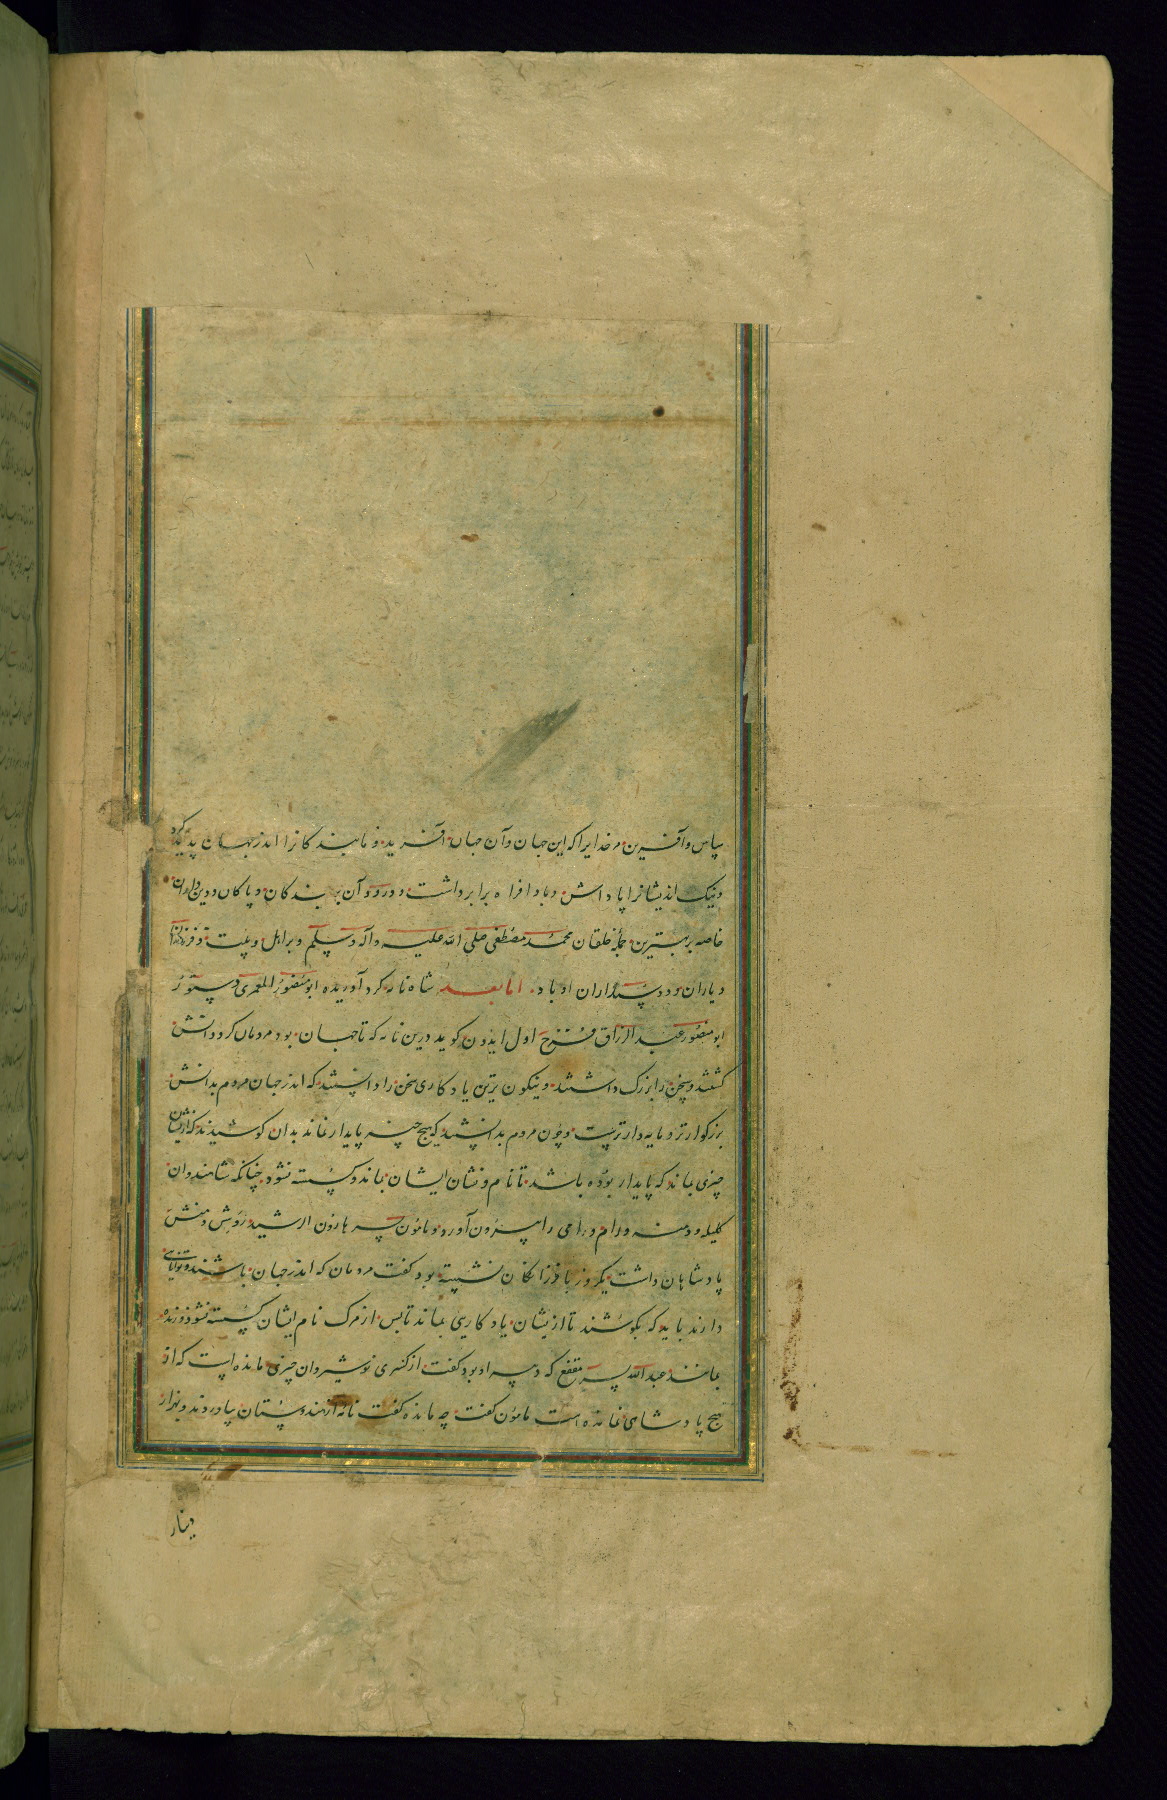 سپاس و آفرین مر خدایرا که این جهان و آن جهان آفرید و ما بندکانرا اندر جهان پدید کرد
و نیک اندیشانرا پاداش و بادافراه برابر داشت و درود آن بر بندکان و پاکان و دین داران
خاصه بر بهترین جمله خلقان محمد مصطفی صلی الله علیه و آله وسلم و بر اهل و بیت و فرزندان
و یاران و دوستداران او باد اما بعد شاه نامه کرد آوریده ابو منصور المعمری دستور
ابو منصور عبد الرزاق فرخ اول ایدون کوید درین نامه که تا جهان بود مردمان کرد دانش
کشتند و سخن را بزرک داشتند و نیکوترین یادکاری سخن را دانستند که اندر جهان مردم بدانش
بزرکوارتر و مایه دارترست و چون مردم بدانستند که هیچ چیز پایدار نماند بدان کوشیدند که ازیشان
چیزی بماند که پایدار بوده باشد تا نام و نشان ایشان بماند و کسسته نشود چنانکه شاه هندوان
کلیله و دمنه و رام و رامی را بیرون آورد و مامون پسر هارون الرشید روش و منش
پادشاهان داشت یکروز با فرزانکان نشسته بود کفت مردمان که اندر جهان باشند و توانایی
دارند باید که بکوشند تا ازیشان یادکاری بماند تا پس از مرک نام ایشان کسسته نشود و زنده
بمانند عبد الله پسر مقفع که دبیر او بود کفت از کسری نوشیروان چیزی مانده است که از
هیچ پادشاهی نمانده است مامون کفت چه مانده کفت نامه از هندوستان بیاوردند و بهزار
دینار